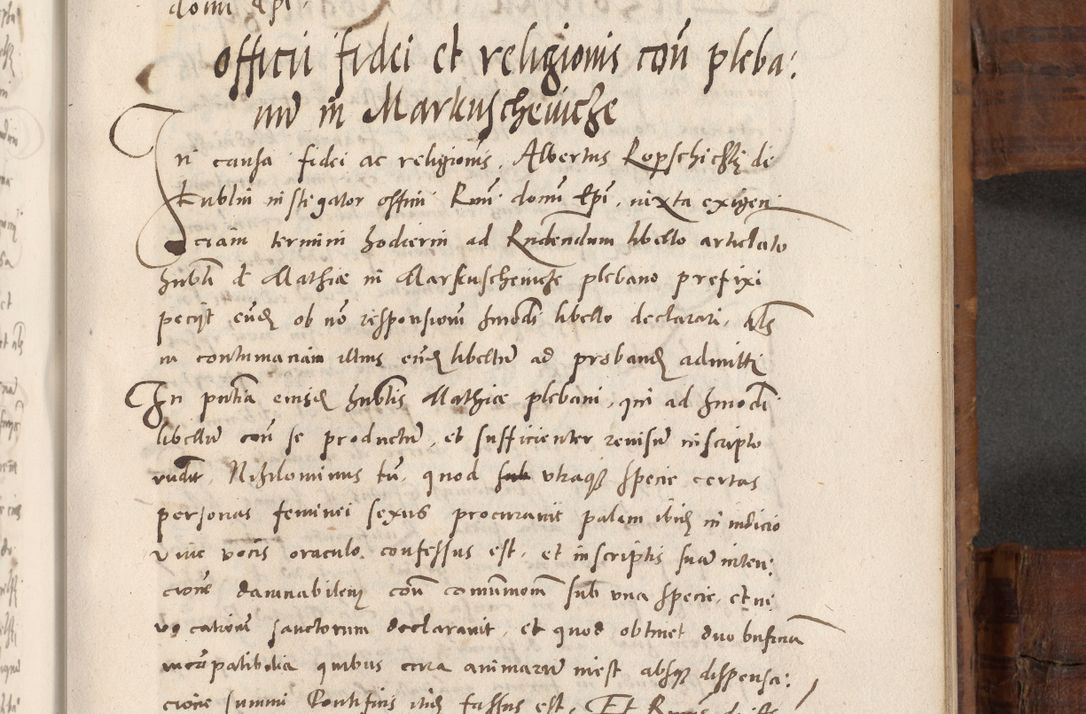 domi Epi.
officii fidei et religionis coñ pleba:
nũ in Markuscheuicze
In causa fidei ac religionis, Albertus Ropschiczkj de
Lublin instigator officii Rmi domi Epi, iuxta exigen
ciam termini hodierni ad Rndendum libello articulato
hũbli d Mathiæ in Markuscheuicze plebano prefixi
pecijt, eund ob non responsionem hmodi libello declarari, als
in contumaciam illius eund libellũ ad proband admitti
In pñtia eiusd hũblis Mathiæ plebani, qui ad hmodi
libellũ coñ se productũ, et sufficienter reuisũ in scripto
rndit, Nihilominus tñ, quod utraqȝ specie certas
personas feminei sexus procurauit palam ibid in iudicio
viue vocis oraculo confessus est, et in scriptis suã inten:
cionẽ damnabilem coñ comũniom sub una specie, et in
uocationẽ sanctorum declarauit, et quod obtinet duo bñficia
incõpatibilia quibus cura animarũ inest absqȝ dispensa:
cione summi Pontificis ibid fassus est, Et